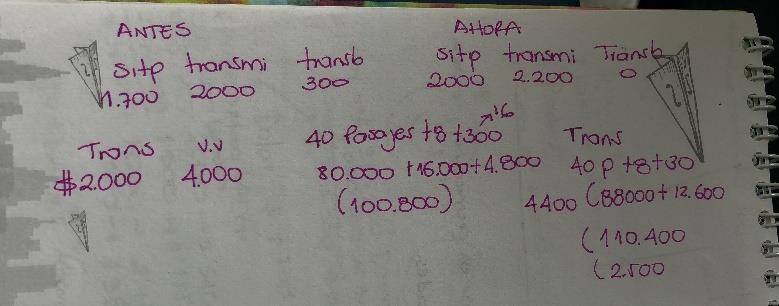 ANTES
AHORA
sitp transmi transb
1.700 2000 300
sitp transmi Transb
2000 2.200 0
Trans V.V
$2.000 4.000
40 Pasajes +8 +300 → 16
80.000 +16.000+4.800
(100.800)
Trans
40 p +8+30
4400 (88000+ 12.600
(110.400
(2.500